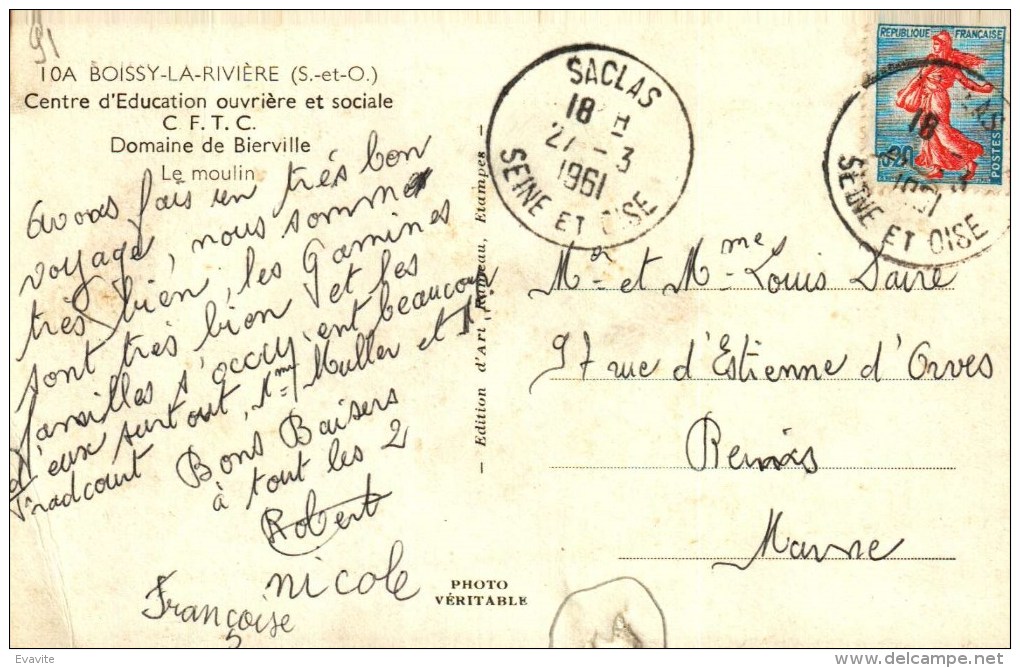 91
10A BOISSY-LA-RIVIÈRE (S.-et-O.)
Centre d'Education ouvrière et sociale
C.F.T.C.
Domaine de Bierville
Le moulin
avons fais un très bon
voyage, nous sommes
très bien, les Gamines
sont très bien et les
familles s'occupent beaucoup
d'eux surtout, Mme Muller et
Bons Baisers
à tout les 2
Robert
nicole
Françoise
PHOTO
VÉRITABLE
Edition d'Art Rameau, Etampes
SACLAS
18 H
27 - 3
1961
SEINE ET OISE
REPUBLIQUE FRANÇAISE
POSTES
18
SEINE ET OISE
Mr et Mme Louis Daire
97 rue d'Estienne d'Orves
Reims
Marne
Evavite
delcampe.net